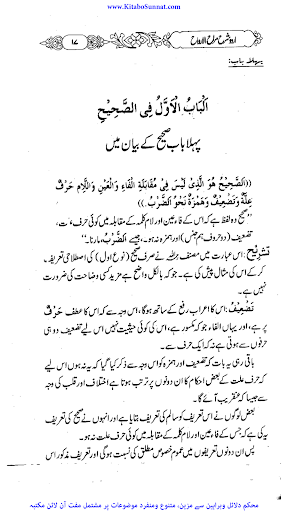 www.KitaboSunnat.com
اردو شرح مراح الارواح
۱۷
پہلا باب:
اَلْبَابُ الْاَوَّلُ فِی الصَّحِیْحِ
پہلا باب صحیح کے بیان میں
((اَلصَّحِیْحُ هُوَ الَّذِیْ لَیْسَ فِیْ مُقَابَلَةِ الْفَاءِ وَالْعَیْنِ وَاللَّامِ حَرْفُ
عِلَّةٍ وَتَضْعِیْفٌ وَهَمْزَةٌ نَحْوُ الضَّرْبُ.))
”صحیح وہ لفظ ہے کہ اس کے فاء، عین اور لام کلمہ کے مقابلہ میں کوئی حرفِ علت،
تضعیف (دو حروف ہم جنس) اور ہمزہ نہ ہو۔ جیسے اَلضَّرْبُ، مارنا۔“
تشریح: اس عبارت میں مصنف نے صرف صحیح (نوع اول) کی اصطلاحی تعریف
کر کے اس کی مثال پیش کی ہے۔ جو کہ بالکل واضح ہے مزید کسی وضاحت کی ضرورت
نہیں ہے۔
تَضْعِیْفٌ: اس کا اعراب رفع کے ساتھ ہوگا، اس وجہ سے کہ اس کا عطف حَرْفُ
پر ہے، اور یہاں الفاء جو کہ مکسور ہے، اس کی کوئی حیثیت نہیں اس لیے تضعیف دو ہی
حرفوں سے ہوتی ہے نہ کہ ایک حرف سے۔
باقی رہی یہ بات کہ تضعیف اور ہمزہ کو اس وجہ سے ذکر کیا گیا کہ یہ نہ ہوں اس لیے
کہ حرف علت کے بعض احکام کا ان دونوں پر ترتب ہوتا ہے اختلاف اور قلب کی وجہ
سے جیسا کہ عنقریب آئے گا۔
بعض لوگوں نے اس تعریف کو سالم کی تعریف بتایا ہے اور انہوں نے صحیح کی تعریف
یہ کی ہے کہ جس کے فاء، عین اور لام کلمہ کے مقابلہ میں کوئی حرف علت نہ ہو۔
پس ان دونوں تعریفوں میں عموم خصوص مطلق کی نسبت ہوگی اور تعریف مذکور اس
محکم دلائل وبراہین سے مزین، متنوع ومنفرد موضوعات پر مشتمل مفت آن لائن مکتبہ